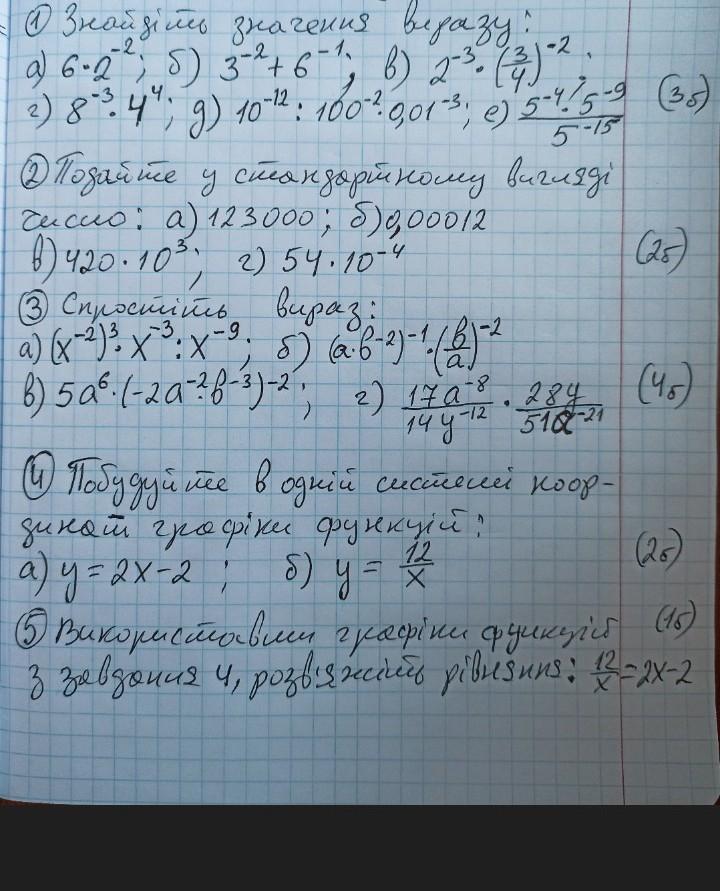 ① Знайдіть значення виразу:
а) 6·2⁻²; б) 3⁻²+6⁻¹; в) 2⁻³·(3/4)⁻²;
г) 8⁻³·4⁴; д) 10⁻¹²:100⁻²·0,01⁻³; е) 5⁻⁴·5⁻⁹/5⁻¹⁵ (3б)
② Подайте у стандартному вигляді
число: а) 123000; б) 0,00012
в) 420·10³; г) 54·10⁻⁴ (2б)
③ Спростіть вираз:
а) (x⁻²)³·x⁻³:x⁻⁹; б) (a·b⁻²)⁻¹·(b/a)⁻²
в) 5a⁶·(-2a⁻²·b⁻³)⁻²; г) 17a⁻⁸/14y⁻¹²·28y/51a⁻²¹ (4б)
④ Побудуйте в одній системі коор-
динат графіки функцій:
а) y=2x-2; б) y=12/x (2б)
⑤ Використавши графіки функцій (1б)
з завдання 4, розв'яжіть рівняння: 12/x=2x-2